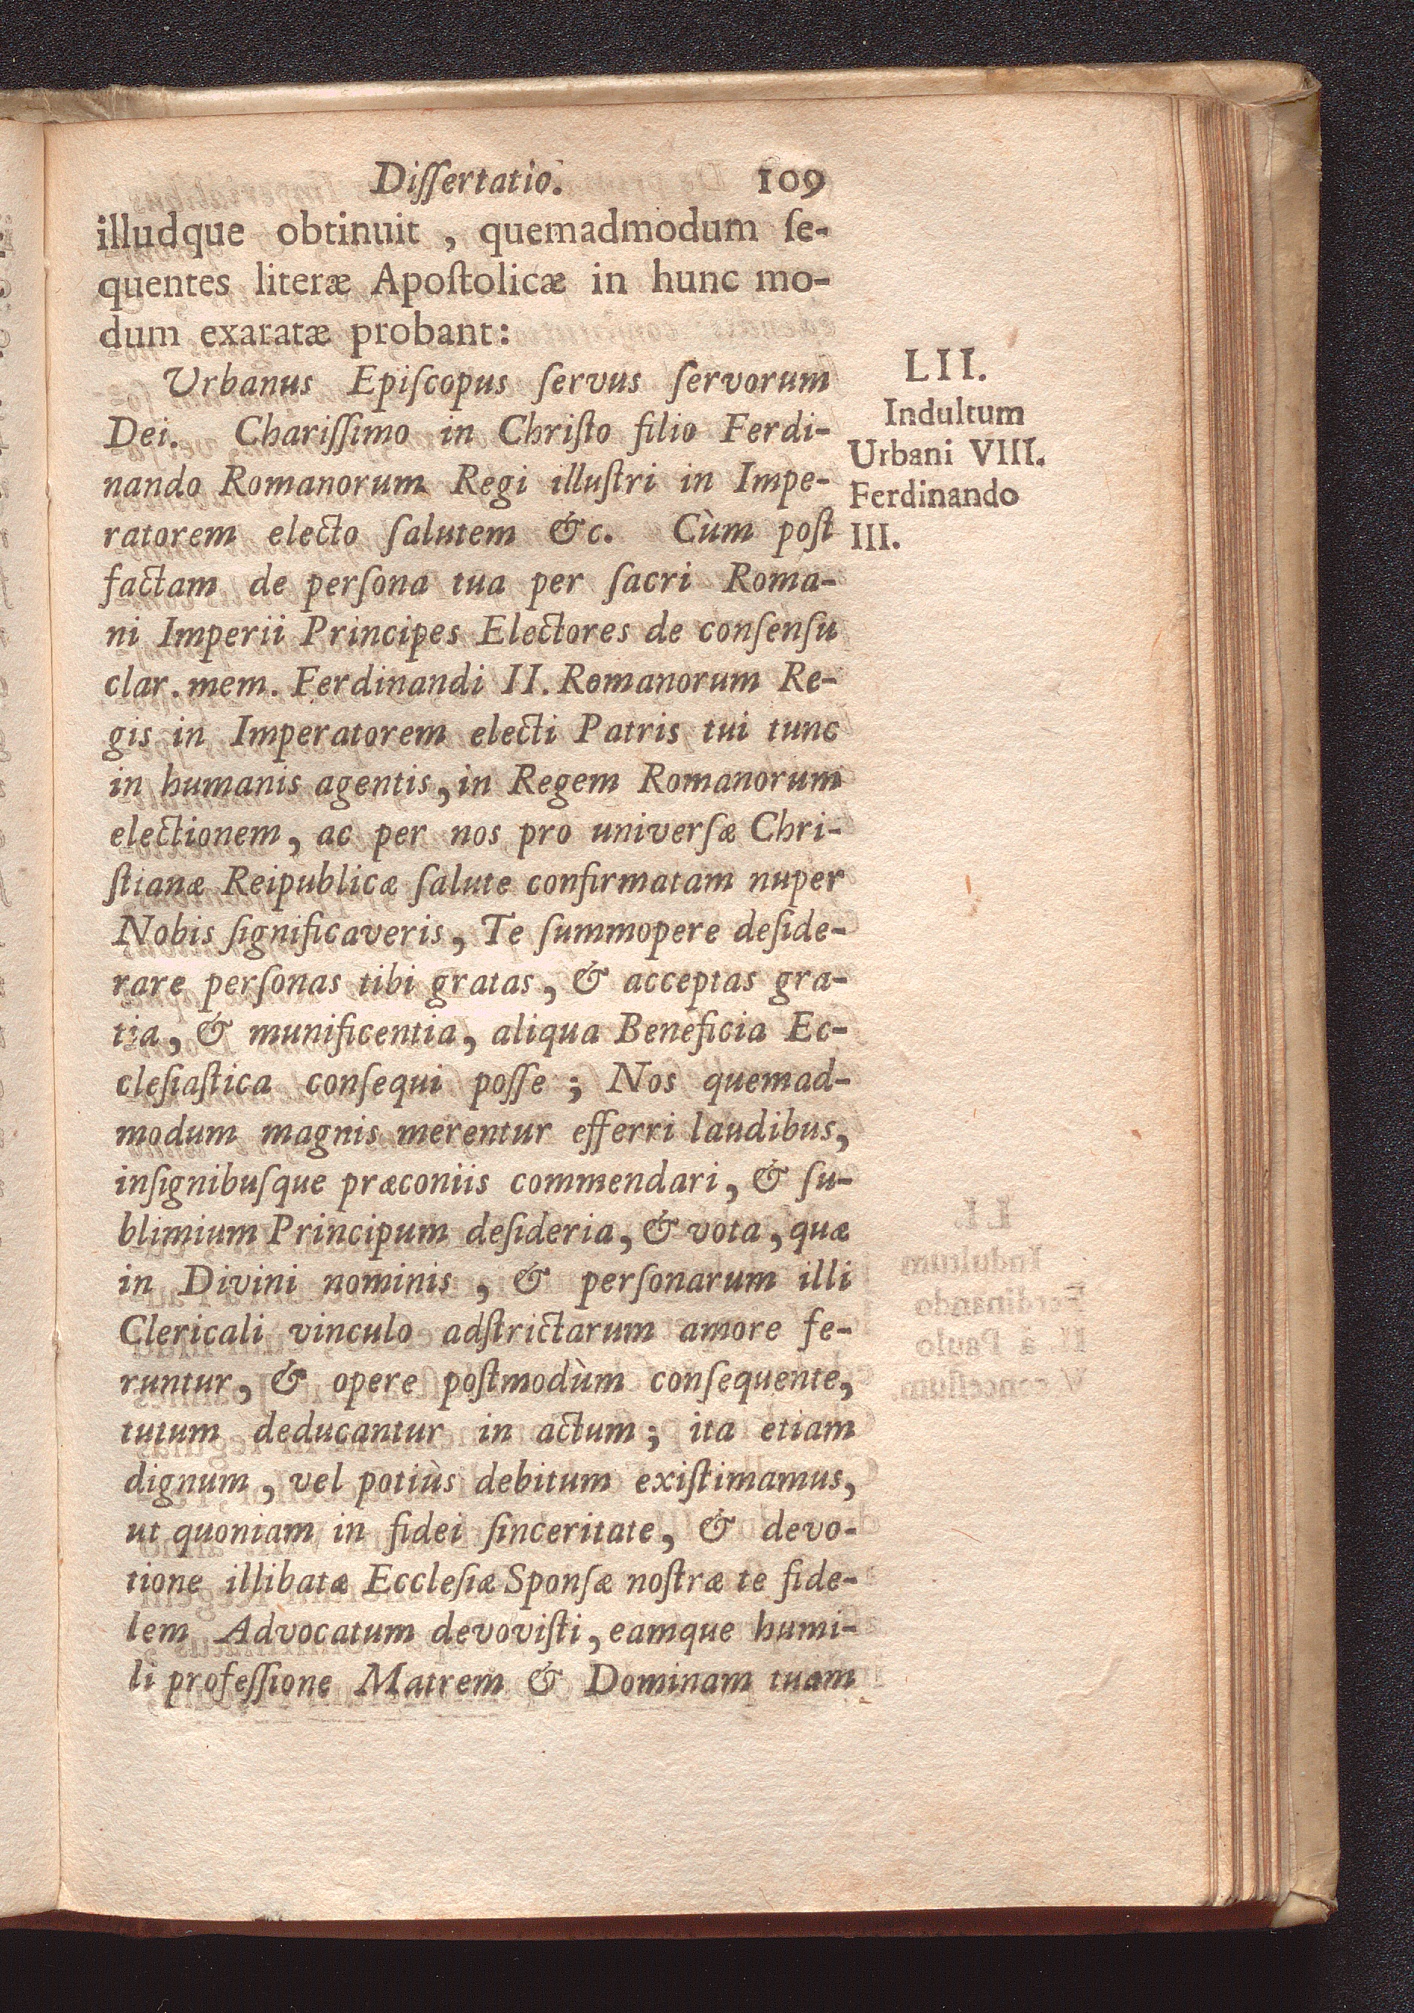 Dissertatio. 109
illudque obtinuit , quemadmodum ſe-
quentes literæ Apoſtolicæ in hunc mo-
dum exaratæ probant:
Urbanus Epiſcopus ſervus ſervorum
Dei. Chariſſimo in Chriſto filio Ferdi-
nando Romanorum Regi illuſtri in Impe-
ratorem electo ſalutem &c. Cùm poſt
factam de perſona tua per ſacri Roma-
ni Imperii Principes Electores de conſenſu
clar. mem. Ferdinandi II. Romanorum Re-
gis in Imperatorem electi Patris tui tunc
in humanis agentis, in Regem Romanorum
electionem, ac per nos pro univerſæ Chri-
ſtianæ Reipublicæ ſalute confirmatam nuper
Nobis ſignificaveris, Te ſummopere deſide-
rare perſonas tibi gratas, & acceptas gra-
tia, & munificentia, aliqua Beneficia Ec-
cleſiaſtica conſequi poſſe ; Nos quemad-
modum magnis merentur efferri laudibus,
inſignibuſque præconiis commendari, & ſu-
blimium Principum deſideria, & vota, quæ
in Divini nominis , & perſonarum illi
Clericali vinculo adſtrictarum amore fe-
runtur, & opere poſtmodùm conſequente,
tutum deducantur in actum; ita etiam
dignum, vel potiùs debitum exiſtimamus,
ut quoniam in fidei ſinceritate, & devo-
tione illibatæ Eccleſiæ Sponſæ noſtræ te fide-
lem Advocatum devoviſti, eamque humi-
li profeſſione Matrem & Dominam tuam
LII.
Indultum
Urbani VIII.
Ferdinando
III.